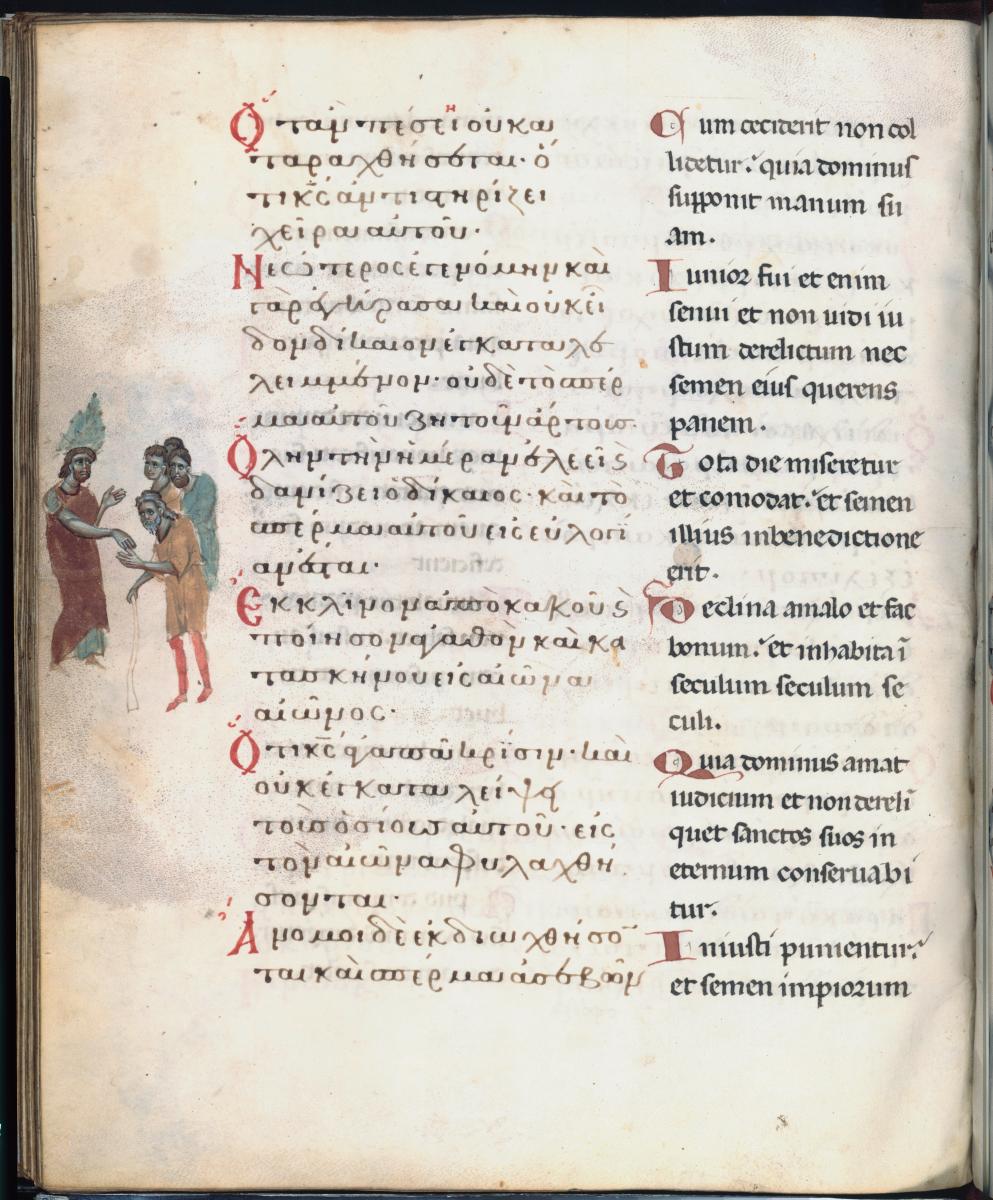 Ὅταν πέσῃ οὐ κα
ταραχθήσεται· ὅ
τι κ̅ς̅ ἀντιστηρίζει
χεῖραν αὐτοῦ·
Νεώτερος ἐγενόμην καὶ
γὰρ ἐγήρασα καὶ οὐκ εἶ
δον δίκαιον ἐγκαταλε
λειμμένον· οὐδὲ τὸ σπέρ
μα αὐτοῦ ζητοῦν ἄρτους·
Ὅλην τὴν ἡμέραν ἐλεεῖ καὶ
δανίζει ὁ δίκαιος· καὶ τὸ
σπέρμα αὐτοῦ εἰς εὐλογί
αν ἔσται·
Ἔκκλινον ἀπὸ κακοῦ καὶ
ποίησον ἀγαθὸν καὶ κα
τασκήνου εἰς αἰῶνα
αἰῶνος·
Ὅτι κ̅ς̅ ἀγαπᾶ κρίσιν· καὶ
οὐκ ἐγκαταλείψει
τοὺς ὁσίους αὐτοῦ εἰς
τὸν αἰῶνα φυλαχθή
σονται
Ἄνομοι δὲ ἐκδιωχθήσον
ται καὶ σπέρμα ἀσεβῶν
Cum ceciderit non col
lidetur: quia dominus
supponit manum su
am.
Iunior fui et enim
senui et non uidi iu
stum derelictum nec
semen eius querens
panem.
Tota die miseretur
et comodat: et semen
illius inbenedictione
erit.
Declina amalo et fac
bonum: et inhabita ī
seculum seculum se
culi.
Quia dominus amat
iudicium et non dereli
quet sanctos suos in
eternum conseruabi
tur:
Iniusti punientur:
et semen impiorum